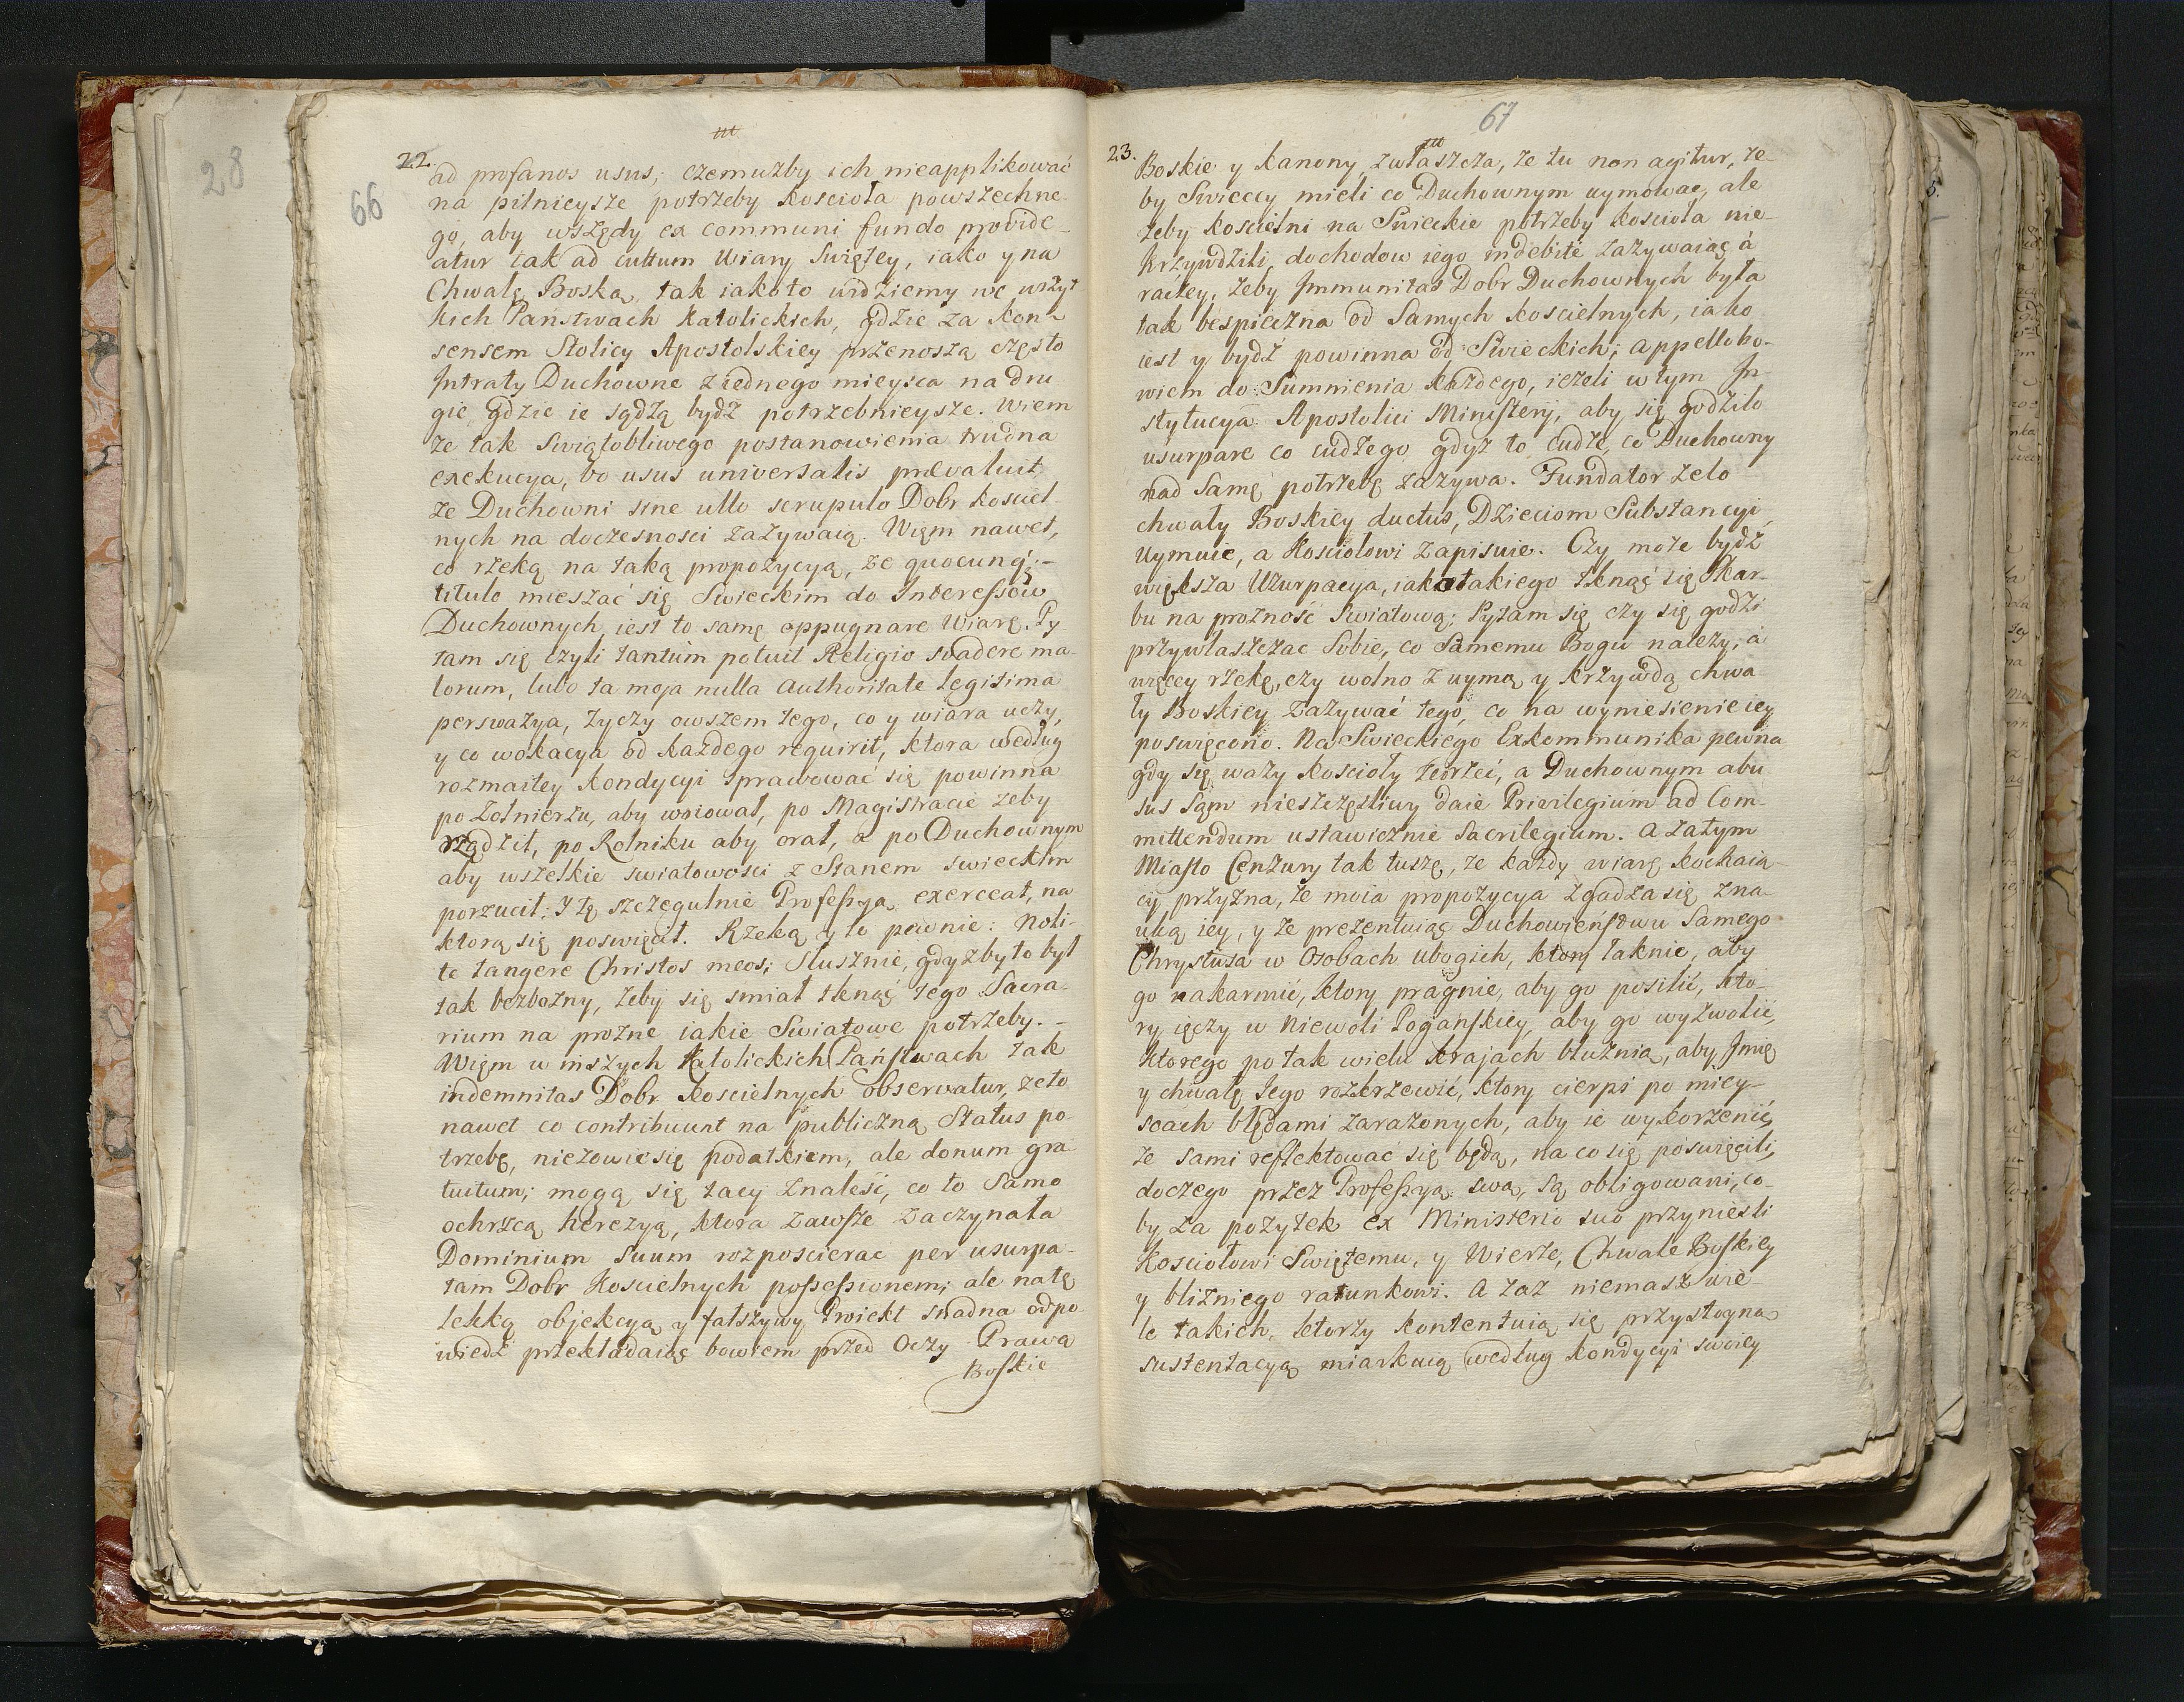 28
66
22.
ad profanos usus, czemużby ich nieapplikować
na pilnieysze potrzeby Koscioła powszechne-
go, aby wszędy ex communi fundo provide-
atur tak ad cultum Wiary Swiętey, iako y na
Chwałę Boską, tak iako to widziemy we wszyt
kich Państwach Katolickich, gdzie za kon-
sensem Stolicy Apostolskiey przenoszą często
Intraty Duchowne z iednego mieysca na dru
gie gdzie ie sądzą bydź potrzebnieysze. Wiem
że tak Swiątobliwego postanowienia trudna
exekucya, bo usus universalis prævaluit,
że Duchowni sine ullo scrupulo Dobr Kosciel-
nych na doczesnosci zażywaią. Więm nawet,
co rzeką na taką propozycyą, że quocunq;-
titulo mieszać się Swieckim do Interessow
Duchownych, iest to samę oppugnare Wiarę. Py
tam się czyli tantùm potuit Religio suadere ma
lorum, lubo ta moja nulla authoritate legitima
perswazya, życzy owszem tego, co y wiara uczy,
y co wokacya od każdego requirit, ktora według
rozmaitey kondycyi sprawować się powinna
po Zołnierzu, aby woiował, po Magistracie zeby
rządził, po Rolniku aby orał, a po Duchownym
aby wszelkie swiatowosci z Stanem swieckim
porzucił; y tę szczegulnie Professyą exerceat, na
ktorą się poswięcił. Rzeką y to pewnie: Noli-
te tangere Christos meos; Słusznie, gdyzby to był
tak bezbozny, żeby się smiał tknąć tego Sacra-
rium na prozne iakie Swiatowe potrzeby. -
Więm w inszych Katolickich Państwach tak
indemnitas Dobr Koscielnych observatur, że to
nawet co contribuunt na publiczną Status po
trzebę, niezowie się podatkiem, ale donum gra
tuitum; mogą się tacy znaleść, co to samo
ochrzcą herezyą, ktora zawsze zaczynała
Dominium Suum rozposcierac per usurpa-
tam Dobr Koscielnych possessionem; ale na tę
lekką objekcyą y fałszywy Prwiekt snadna odpo-
wiedź przekładaiąc bowiem przed Oczy Prawa
Boskie
67
23.
Boskie y Kanony, zwłaszcza, że tu non agitur, że-
by Swieccy mieli co Duchownym uymowac, ale
żeby Koscielni na Swieckie potrzeby Koscioła nie-
krzywdzili, dochodow iego indebitè zazywaiąc á
raczey, żeby Immunitas Dobr Duchownych była
tak bespieczna od Samych Koscielnych, iako
iest y bydź powinna od Swieckich; appello bo-
wiem do Sumnienia każdego, ieżeli w tym In-
stytucya Apostolici Ministerij, aby się godziło
usurpare co cudzego, gdyż to cudze, co Duchowny
nad Samę potrzebę zazywa. Fundator zelo
chwały Boskiey ductus, Dzieciom Substancyi
uymuie, a Kosciołowi zapisuie. Czy może bydź
większa Uzurpacya, iako takiego tknąć się Skar-
bu na prożność Swiatową; Pytam się czy się godzi
przywłaszczac Sobie, co Samemu Bogu należy; a
więcey rzekę, czy wolno z uymą y krzywdą chwa
ły Boskiey zażywać tego, co na wyniesienie iey
poswięcono. Na Swieckiego Exkommunika pewna
gdy się waży Koscioły zedrzeć, a Duchownym abu
sus Sąm nieszczęsliwy daie Privilegium ad Com-
mittendum ustawicznie Sacrilegium. A zatym
Miasto Cenzury tak tuszę, że każdy wiarę kochaią-
cy przyzna, że moia propozycya zgadza się zna-
uką iey, y że prezentuiąc Duchowieństwu Samego
Chrystusa w Osobach ubogich, ktory łaknie, aby
go nakarmić, ktory pragnie, aby go posilić, kto-
ry ięczy w Niewoli Pogańskiey, aby go wyzwolić,
ktorego po tak wielu krajach bluźnią, aby Imię
y chwałę Jego rozkrzewić, ktory cierpi po miey-
scach błędami zarażonych, aby ie wykorzenić,
że sami reflektować się będą, na co się poswięcili,
do czego przez Professyą swą, są obligowani, co-
by za pożytek ex Ministerio suo przyniesli
Kosciołowi Swiętemu, y Wierze, Chwale Boskiey
y bliźniego ratunkowi. A zaż niemasz wie
le takich, ktorzy kontentuią się przystoyną
sustentacyą miarkuią według kondycyi swoiey